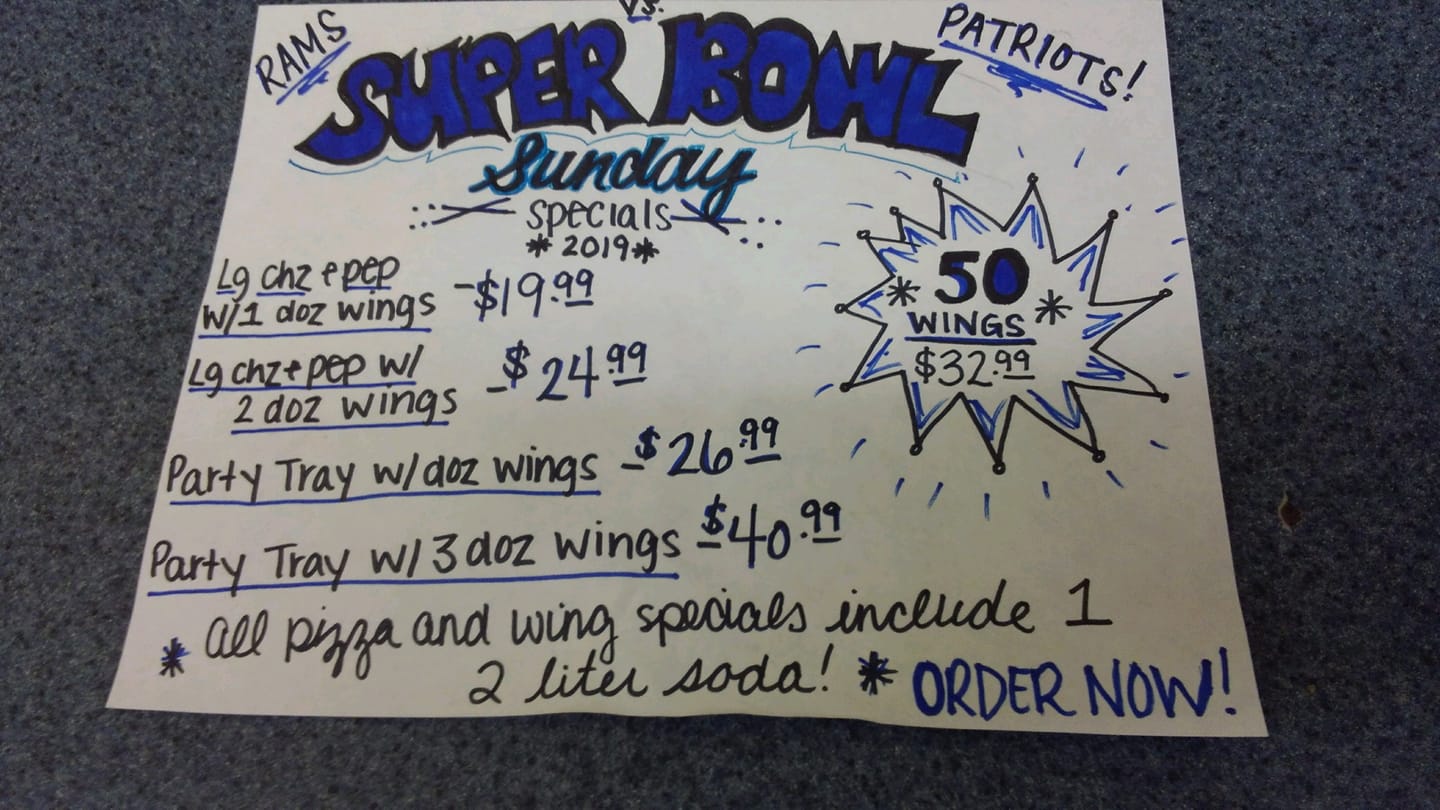 RAMS vs. PATRIOTS!
SUPER BOWL
Sunday
specials
*2019*
Lg chz + pep
w/1 doz wings -$19.99
Lg chz + pep w/
2 doz wings -$24.99
Party Tray w/doz wings -$26.99
Party Tray w/3 doz wings $40.99
* 50 *
WINGS
$32.99
* all pizza and wing specials include 1
2 liter soda! * ORDER NOW!